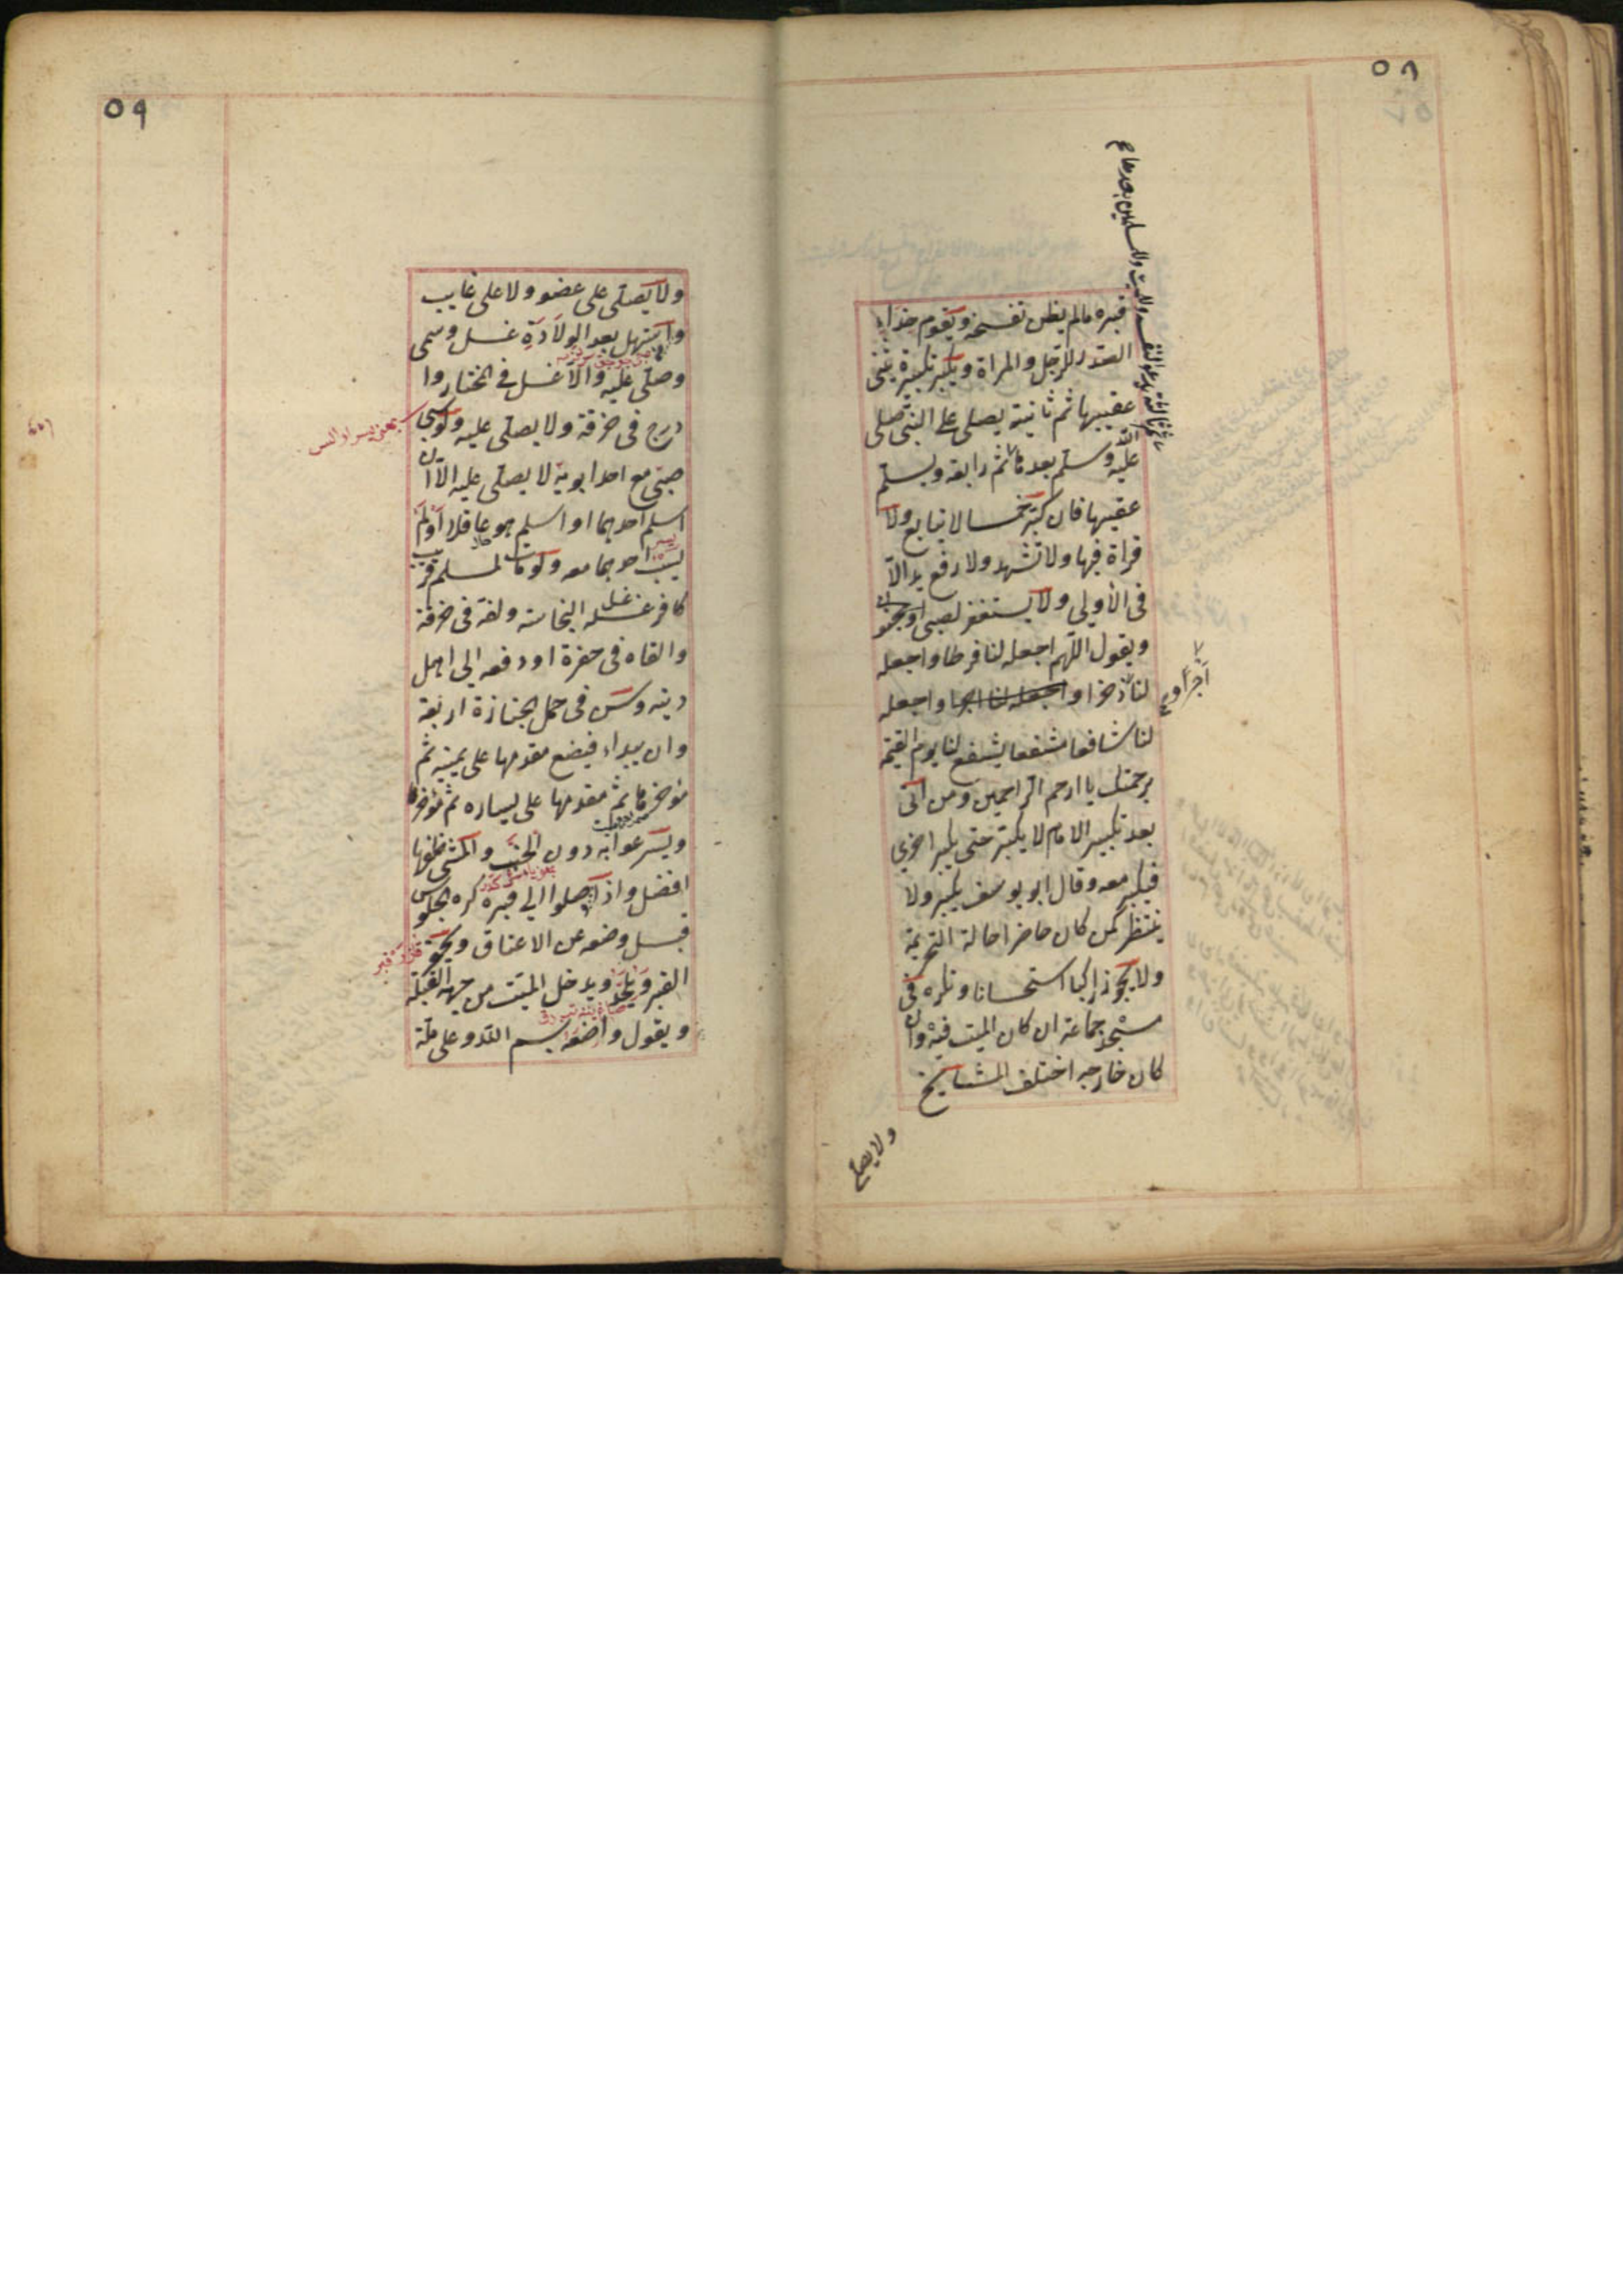 ٥٨
قبره مالم يظن تفسخه ويقوم حذاء
الصدر للرجل والمراة ويكبر تكبيرة يثنى
عقيبها ثم ثانية يصلى على النبى صلى
الله عليه وسلم بعدها ثم رابعة ويسلم
عقيبها فان كبر خمسا لا يتابع ولا
قراة فيها ولا تشهد ولا رفع يد الا
فى الأولى ولا يستغفر لصبى او مجنون
ويقول اللهم اجعله لنا فرطا واجعله
لنا ذخرا واجعله لنا اجرا واجعله
لنا شافعا مشفعا يشفع لنا يوم القيمة
برحمتك يا ارحم الراحمين ومن اتى
بعد تكبير الامام لا يكبر حتى يكبر اخرى
فيكبر معه وقال ابو يوسف يكبر ولا
ينتظر كمن كان حاضرا حالة التحريمة
ولا يجوز راكبا استحسانا وتكره فى
مسجد جماعة ان كان الميت فيه وان
كان خارجه اختلف المشايخ
ثم ثالثة يدعو لنفسه وللميت وللمسلمين بعدها صح
اجرا و صح
ولا يصلى
٥٩
ولا يصلى على عضو ولا على غايب
وا ستهل بعد الولادة غسل وسمى
وصلى عليه والا غسل فى المختار وا
درج فى خرقة ولا يصلى عليه ولو سبى
صبى مع احد ابويه لا يصلى عليه الا ان
اسلم احدهما او اسلم هو عاقلا او لم
يسب احدهما معه ولو مات لمسلم قريب
كافر غسله غسل النجاسة ولفه فى خرقة
والقاه فى حفرة او دفعه الى اهل
دينه وسن فى حمل الجنازة اربعة
وان يبداء فيضع مقدمها على يمينه ثم
مؤخرها ثم مقدمها على يساره ثم مؤخرها
ويسرعوا به دون الخبب والمشى خلفها
افضل واذا وصلوا الى قبره كره الجلوس
قبل وضعه عن الاعناق ويحفر
القبر ويلحد ويدخل الميت من جهة القبلة
ويقول واضعه بسم الله وعلى ملة